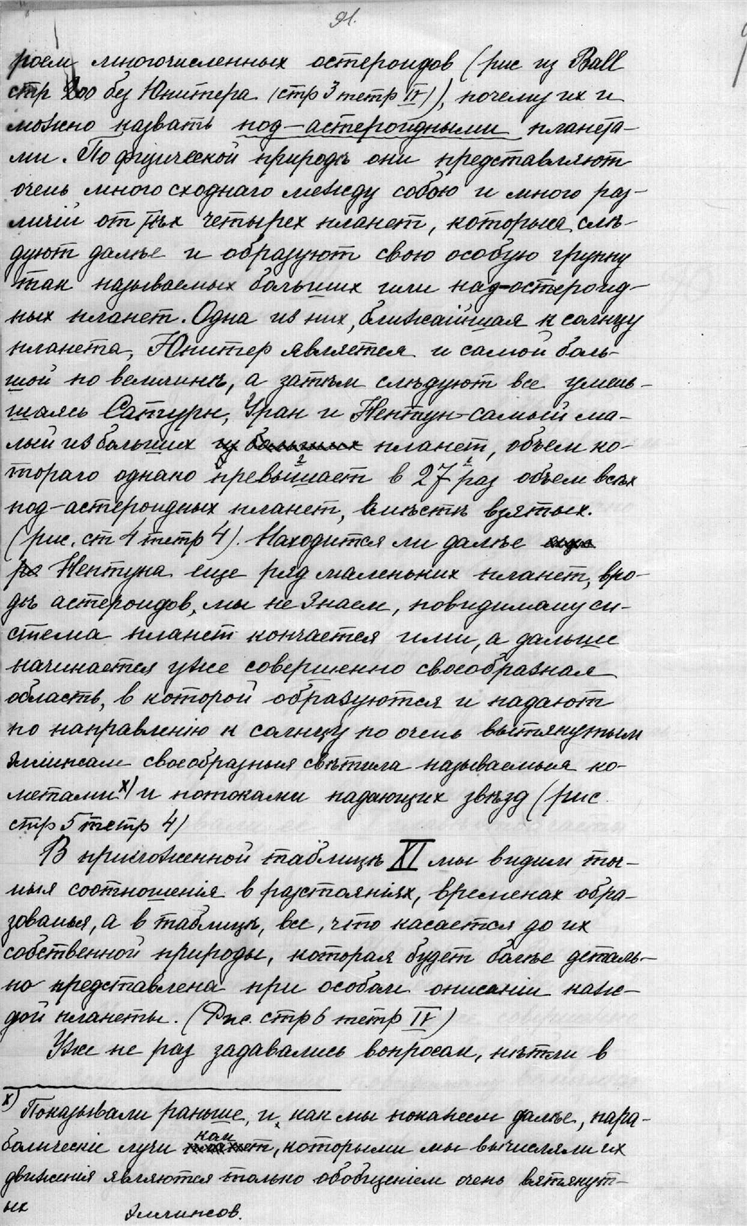 91.
роем многочисленных остероидов (рис из Ball
стр 200 без Юпитера (стр 3 тетр IV)), почему их и
можно назвать под-астероидными планета-
ми. По физической природѣ они представляют
очень много сходнаго между собою и много раз-
личій от тѣх четырех планет, которыя слѣ-
дуют далѣе и образуют свою особую группу
так называемых больших или над-остероид-
ных планет. Одна из них, ближайшая к солнцу
планета, Юпитер является и самой боль-
шой по величинѣ, а затѣм слѣдуют все умень-
шаясь Сатурн, Уран и Нептун-самый ма-
лый из больших из больших планет, объем ко-
тораго однако превышает в 27 раз объем всѣх
под-астероидных планет, вмѣстѣ взятых.
(рис. ст 4 тетр 4). Находится ли далѣе
Нептуна еще ряд маленьких планет, вро-
дѣ астероидов, мы не знаем, повидимому си-
стема планет кончается ими, а дальше
начинается уже совершенно своеобразная
область, в которой образуются и падают
по направленію к солнцу по очень вытянутым
эллипсам своеобразныя свѣтила называемыя ко-
метами х) и потоками падающих звѣзд (рис.
стр 5 тетр 4)
В приложенной таблицѣ XI мы видим точ-
ныя соотношенія в разстояніях, временах обра-
зованья, а в таблицѣ, все, что касается до их
собственной природы, которая будет болѣе деталь-
но представлена при особом описаніи каж-
дой планеты. (Рис. стр 6 тетр IV)
Уже не раз задавались вопросам, нѣтли в
х) Показывали раньше, и, как мы покажем далѣе, пара-
болически лучи ком, которыми мы вычисляли их
движения являются только обобщением очень вятянут-
ых эллипсов.